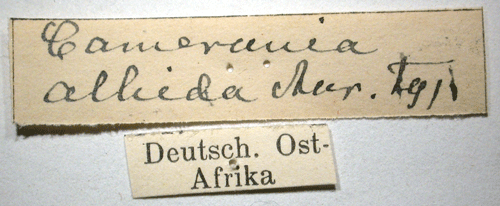 Camerunia
albida Aur. Typ
Deutsch. Ost-
Afrika